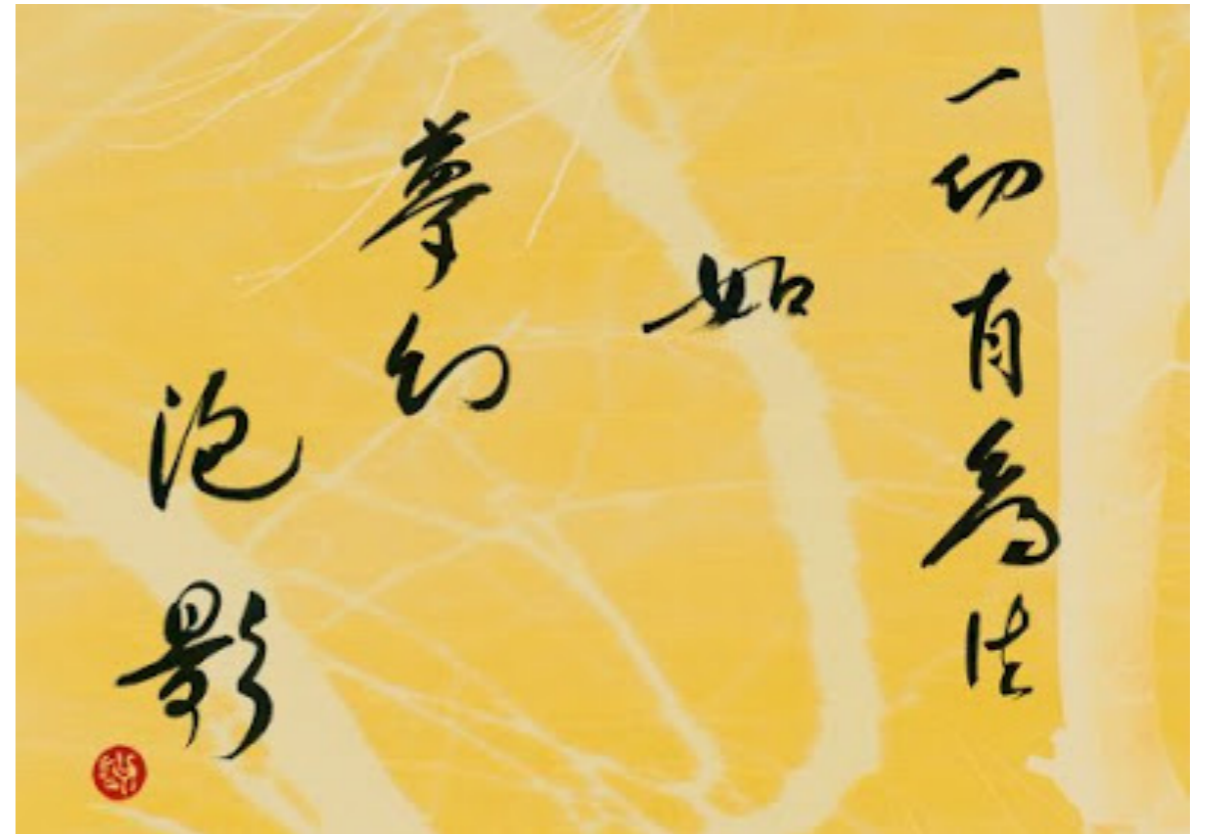 一切有為法
如
夢幻
泡影